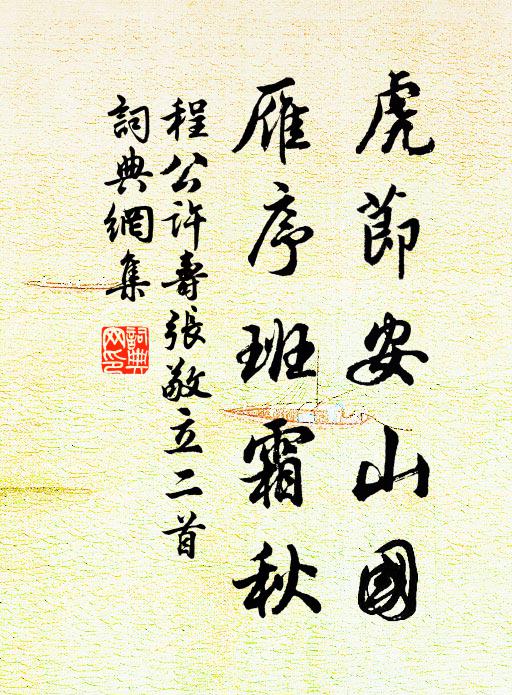 虎節安山國
雁序班霜秋
程公許壽張敬立二首
詞典網集
詞典
网印